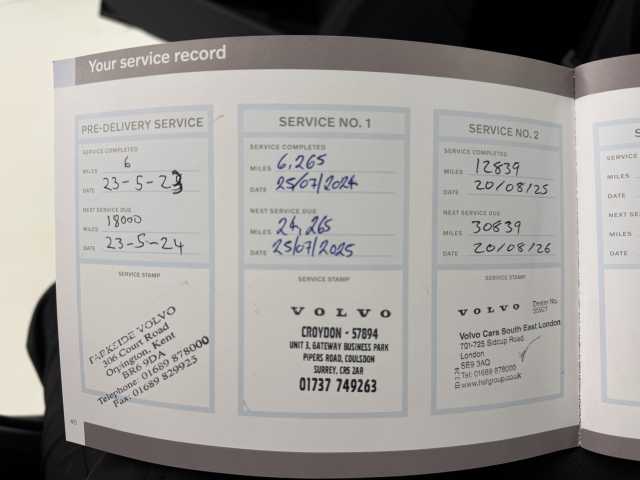 Your service record
PRE-DELIVERY SERVICE
SERVICE COMPLETED
MILES 6
DATE 23-5-23
NEXT SERVICE DUE
MILES 18000
DATE 23-5-24
SERVICE STAMP
PARKSIDE VOLVO
306 Court Road
Orpington, Kent
BR6 9DA
Telephone: 01689 878000
Fax: 01689 829925
SERVICE NO. 1
SERVICE COMPLETED
MILES 6,265
DATE 25/07/2024
NEXT SERVICE DUE
MILES 24,265
DATE 25/07/2025
SERVICE STAMP
VOLVO
CROYDON - 57894
UNIT 3, GATEWAY BUSINESS PARK
PIPERS ROAD, COULSDON
SURREY, CR5 2AR
01737 749263
SERVICE NO. 2
SERVICE COMPLETED
MILES 12839
DATE 20/08/25
NEXT SERVICE DUE
MILES 30839
DATE 20/08/26
SERVICE STAMP
VOLVO
Dealer No.
Volvo Cars South East London
701-725 Sidcup Road
London
SE9 3AQ
Tel: 01689 878000
www.hsfgroup.co.uk
S
SERVICE
MILES
DATE
NEXT SE
MILES
DATE
40